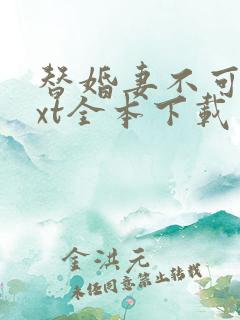 替婚妻不可
xt全本下载
金洪元
未经同意禁止转载